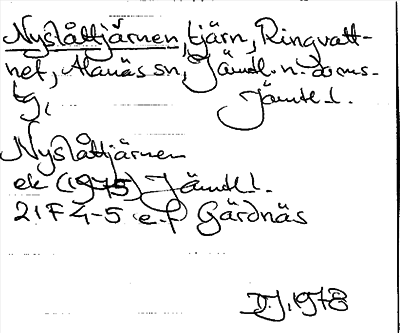 Nyslåttjärnen, tjärn, Ringvatt-
net, Alanäs sn, Jämtl. n. doms-
tg, Jämtl. l.
Nyslåttjärnen
ek (1975) Jämtl. l.
21F 4-5 e.f Gärdnäs
D.J. 1978